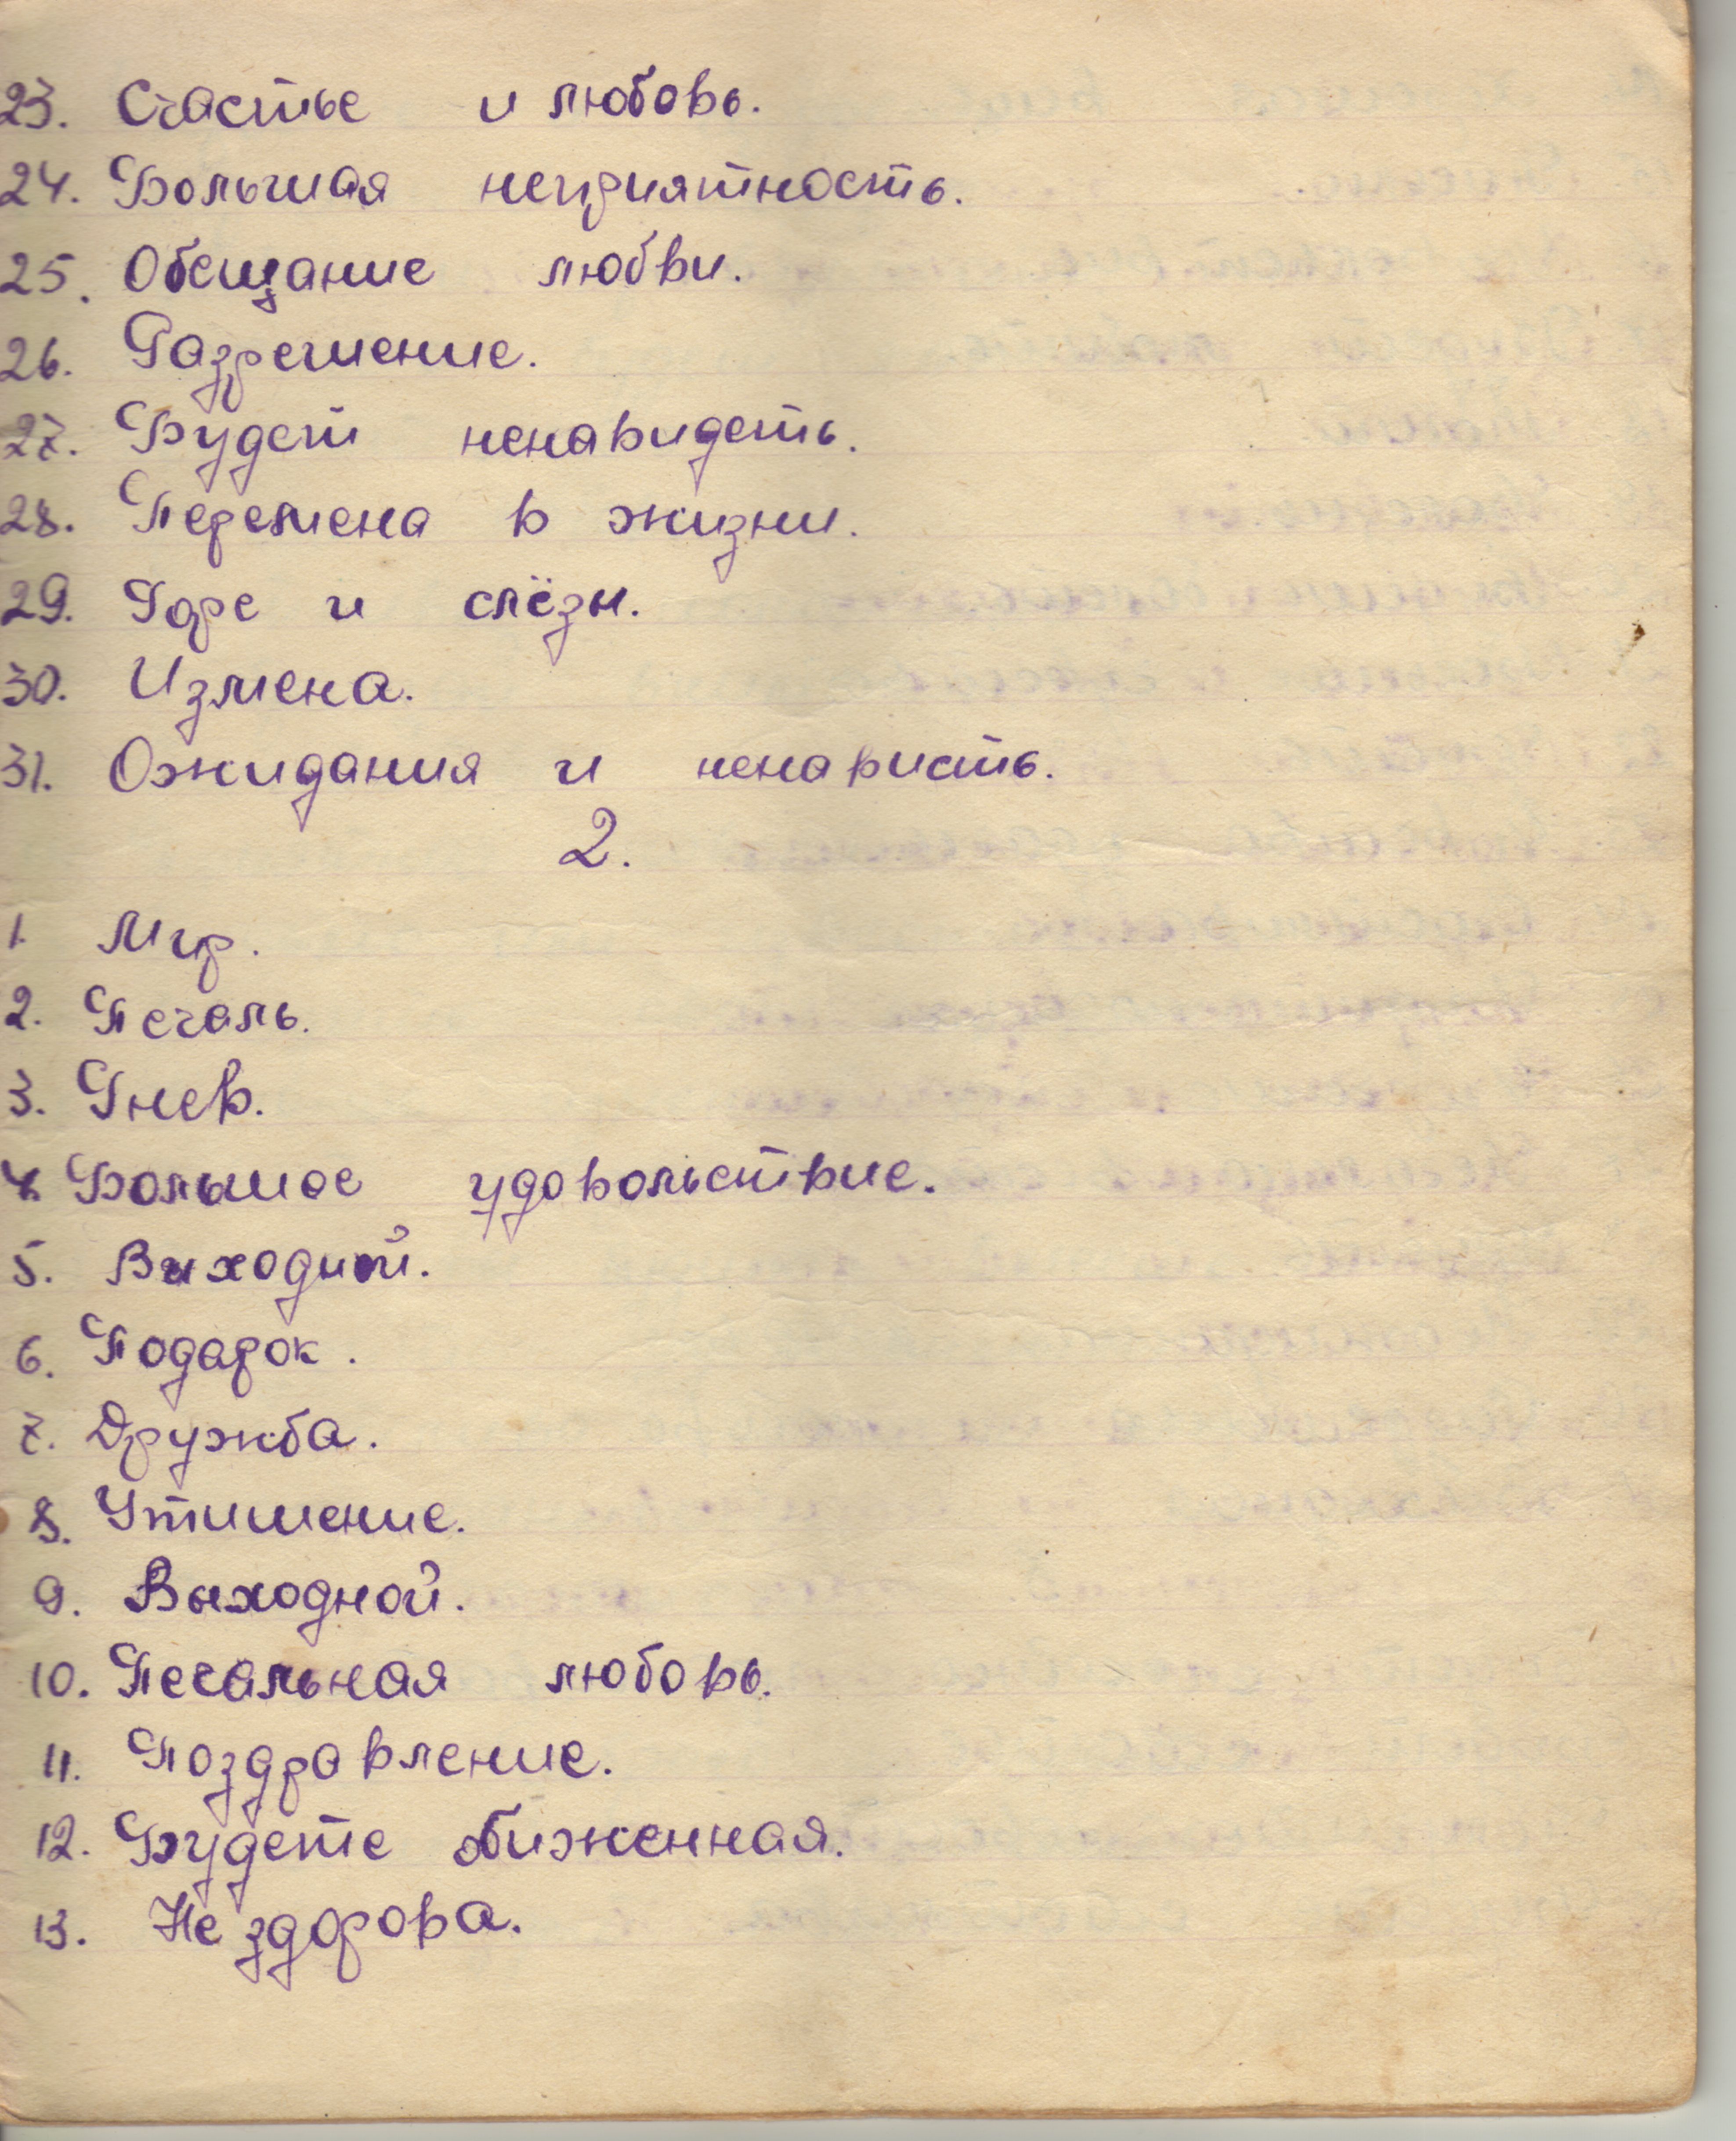 23. Счастье и любовь.
24. Большая неприятность.
25. Обещание любви.
26. Разрешение.
27. Будет ненавидеть.
28. Перемена в жизни.
29. Горе и слёзы.
30. Измена.
31. Ожидания и ненависть.
2.
1. Мир.
2. Печаль.
3. Гнев.
4. Большое удовольствие.
5. Выходной.
6. Подарок.
7. Дружба.
8. Утишение.
9. Выходной.
10. Печальная любовь.
11. Поздравление.
12. Будете обиженная.
13. Не здорова.